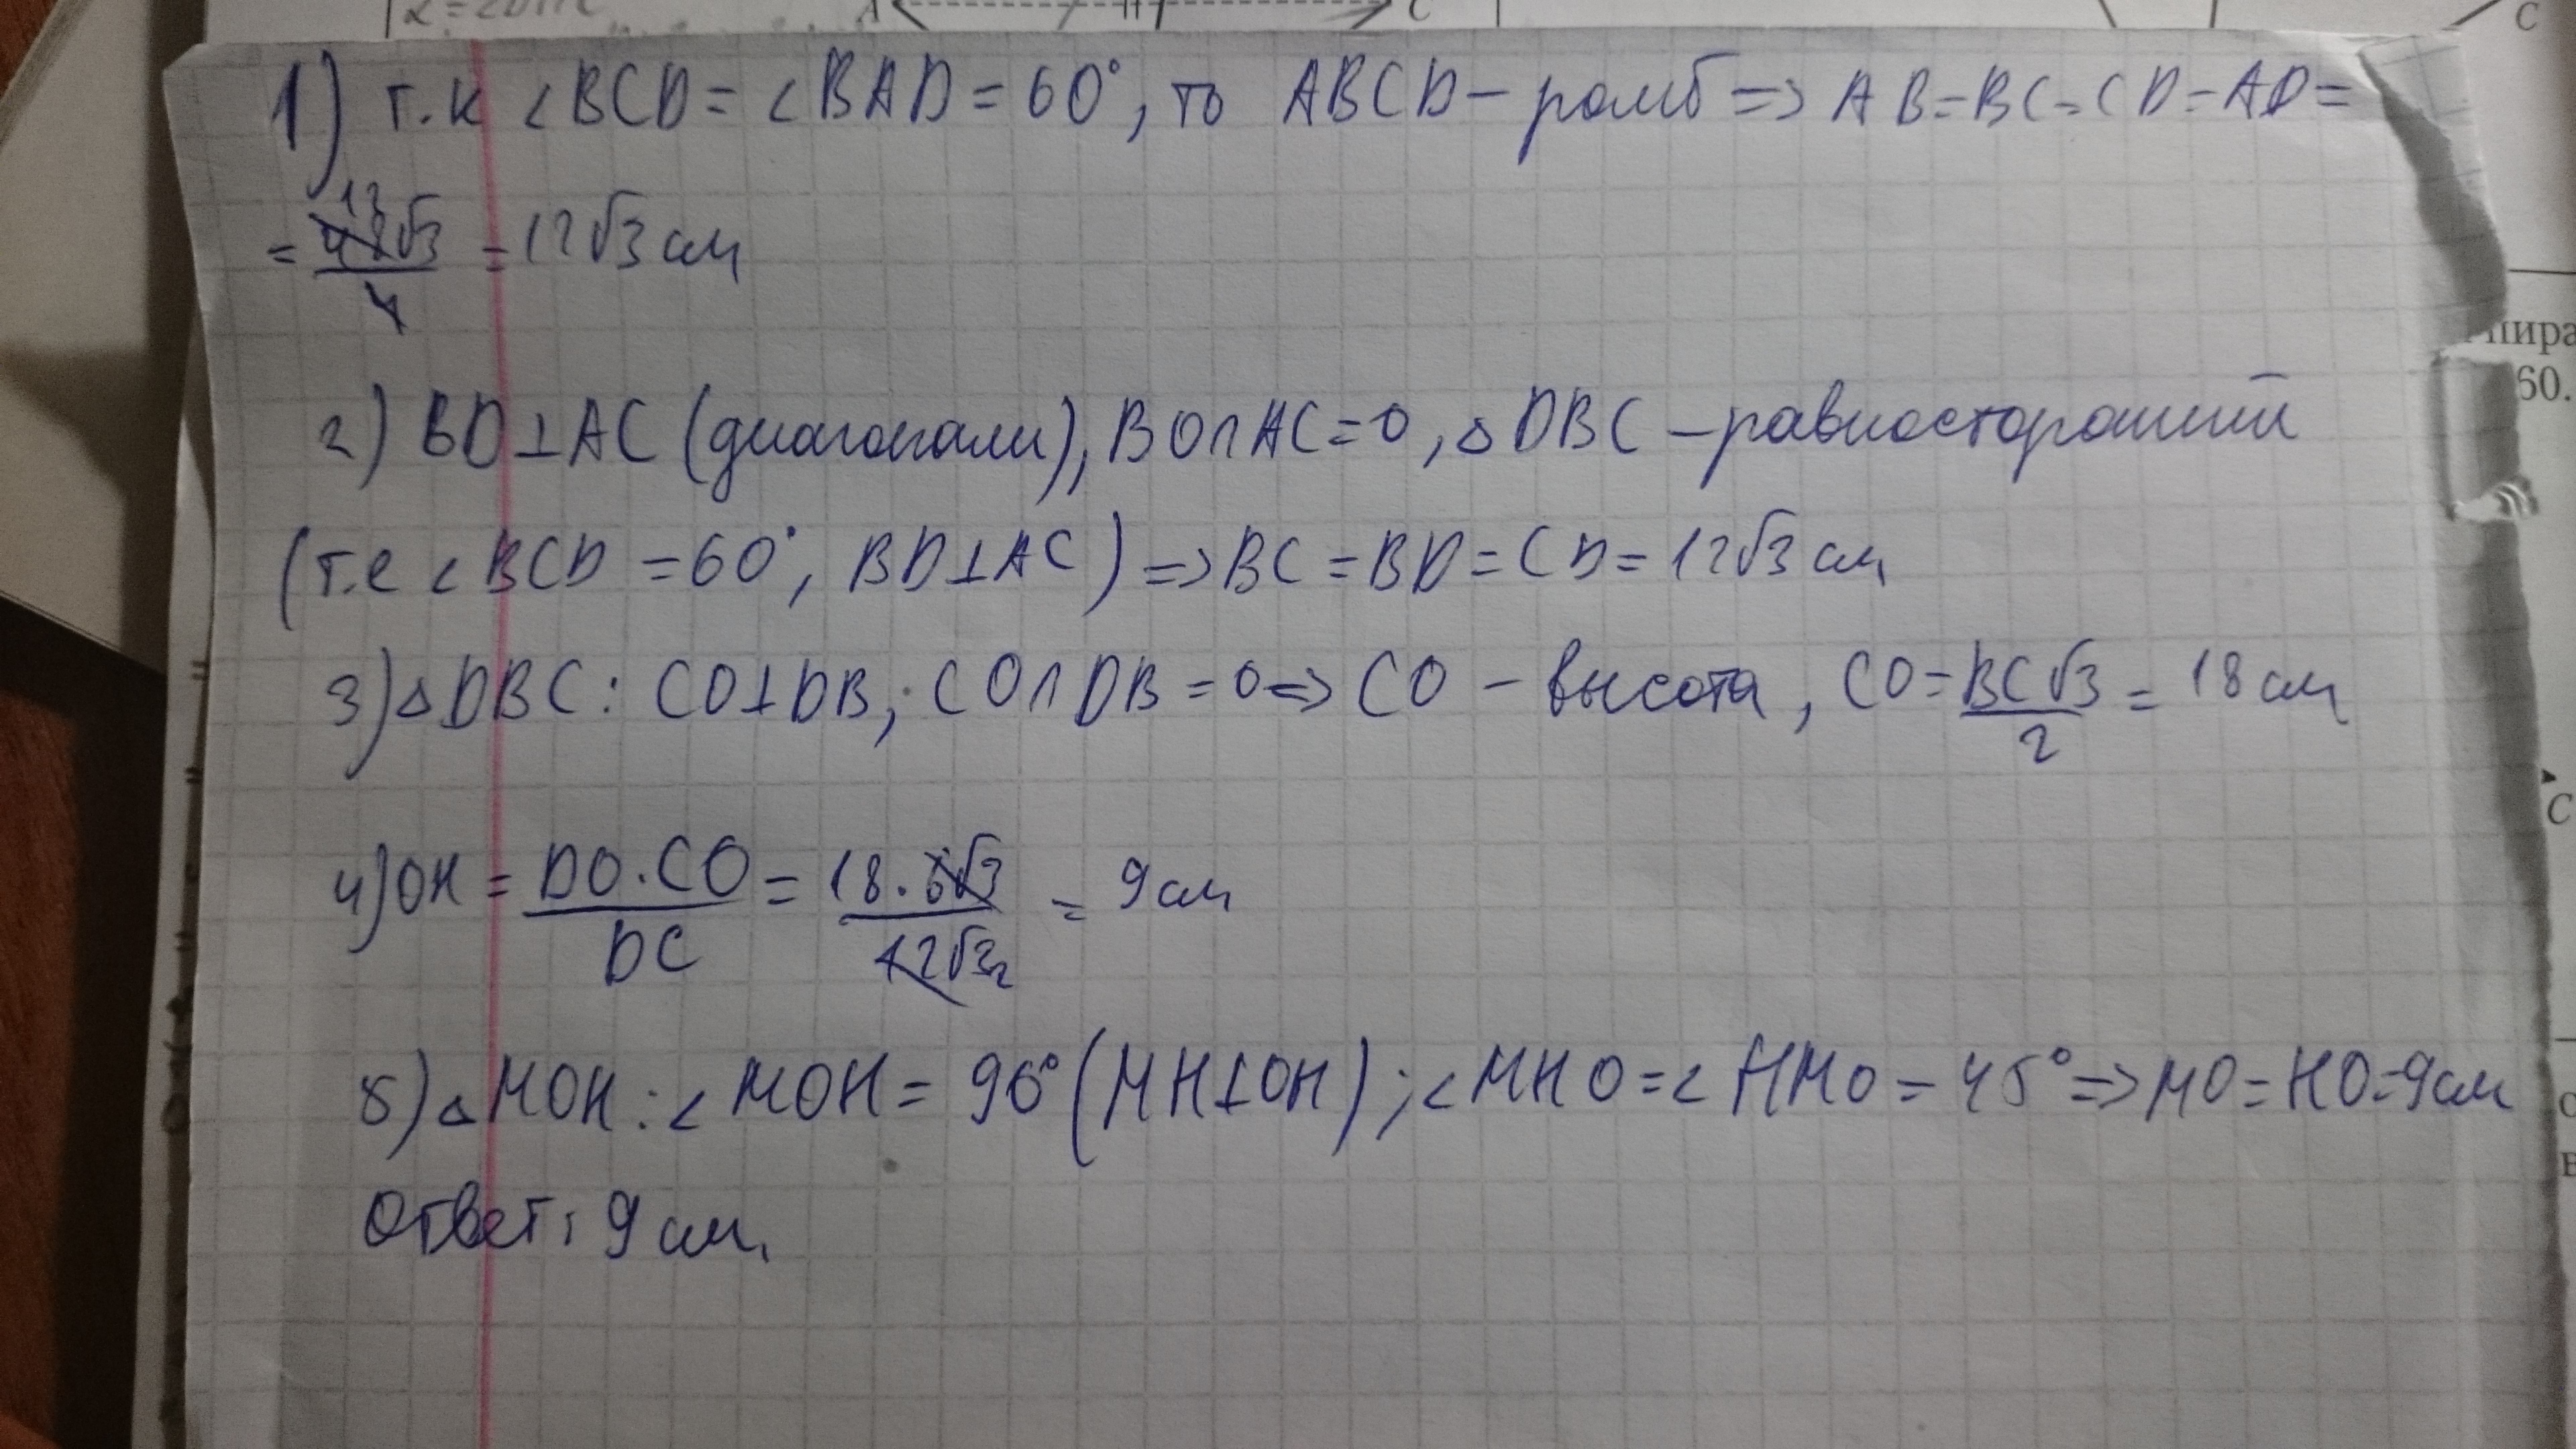 A C
C
1) т.к ∠BCD = ∠BAD = 60°, то ABCD – ромб => AB = BC = CD = AD =
= 48√3 / 4 = 12√3 см
пира
60.
2) BD⊥AC (диагонали), BO∩AC = O, △DBC – равносторонний
(т.е ∠BCD = 60°, BD⊥AC) => BC = BD = CD = 12√3 см
3) △DBC: CO⊥DB; CO∩DB = O => CO – высота, CO = BC√3 / 2 = 18 см
C
4) OH = DO·CO / DC = 18·6√3 / 12√3 2 = 9 см
5) △MOH: ∠MOH = 90° (MH⊥OH); ∠MHO = ∠HMO = 45° => MO = HO = 9 см
Ответ: 9 см.